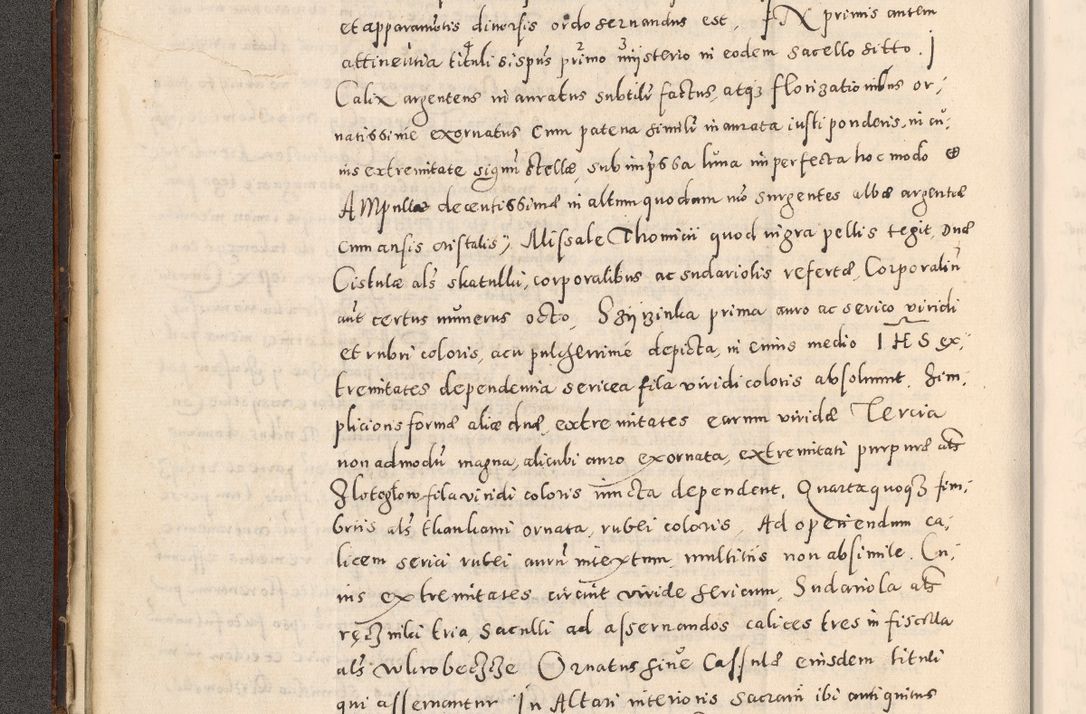 et apparamentis diversis ordo servandus est, IN primis autem
attinentia tituli sispus primo misterio in eodem sacello sitto. I
Calix argenteus in auratus subtili factus, atq₃ florizationibus or,
natissime exornatus Cum patena simili in aurata iusti ponderis, in cu,
ius extremitate signu stellæ, sub impssa luna imperfecta hoc modo
AMpullæ decentissimæ in altum quodam mo surgentes albæ argenteæ
cum ansis cristalis, Missale Thominii quod nigra pellis tegit, Duæ
Cistulæ als skatulli, corporalibus ac sudariolis refertæ. Corporaliu
aut certus numerus octo, Szyrzinka prima auro ac serico viridi
et rubri coloris, acu pulcherrime depicta, in cuius medio IHS ex,
tremitates dependentia sericea fila viridi coloris absolvunt. Sim,
plicioris formæ aliæ duæ, extremitates earum viridæ Tercia
non admodu magna, alicubi auro exornata, extremitati purpuræ als
Zlotoglow fila viridi coloris iuncta dependent. Quarta quoq₃ fim,
briis als tkankami ornata, rubei coloris, Ad operiendum ca,
licem serici rubei auru intextum multitiis non absimile. Cu,
ius extremitates circuit viride sericum, Sudariola als
ręcznikі tria, Sacculli ad asservandos calices tres in fiscella
als wkrobeczże Ornatus sive Cassulæ eiusdem tituli
qui asservantur In Altari interioris Sacrarii ibi antiquitus